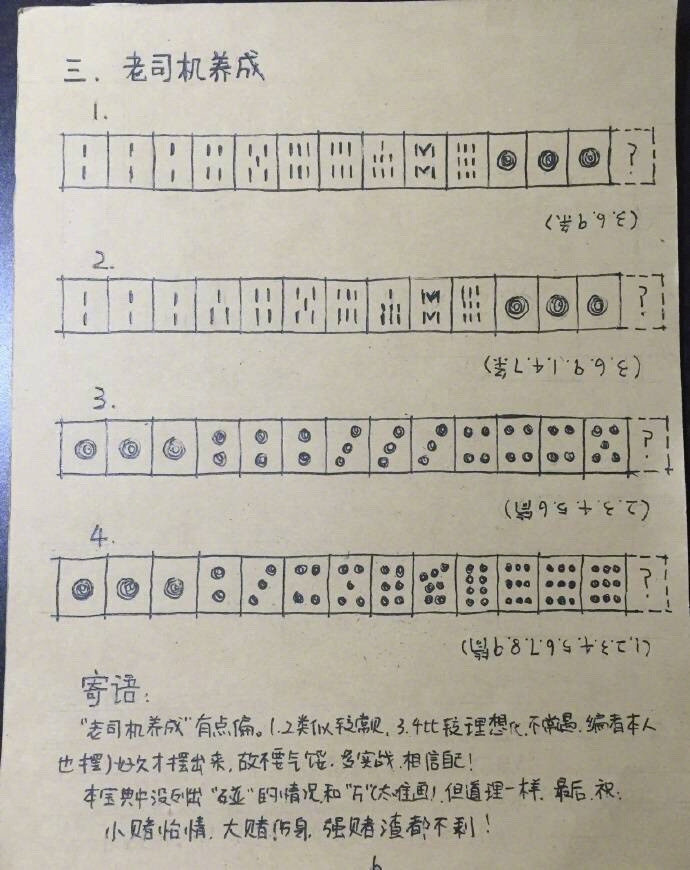 三. 老司机养成
1.
?
(3.6.9条)
2.
?
(3.6.9.1.4.7条)
3.
?
(2.3.4.5.6筒)
4.
?
(1.2.3.4.5.6.7.8.9筒)
寄语:
"老司机养成"有点偏。1.2类似较常规, 3.4比较理想化,不常遇.编者本人
也摆了好久才摆出来,故不要气馁.多实战.相信自己!
本宝典中没列出"碰"的情况和"万"(太难画),但道理一样.最后.祝:
小赌怡情.大赌伤身,强赌渣都不剩!
6